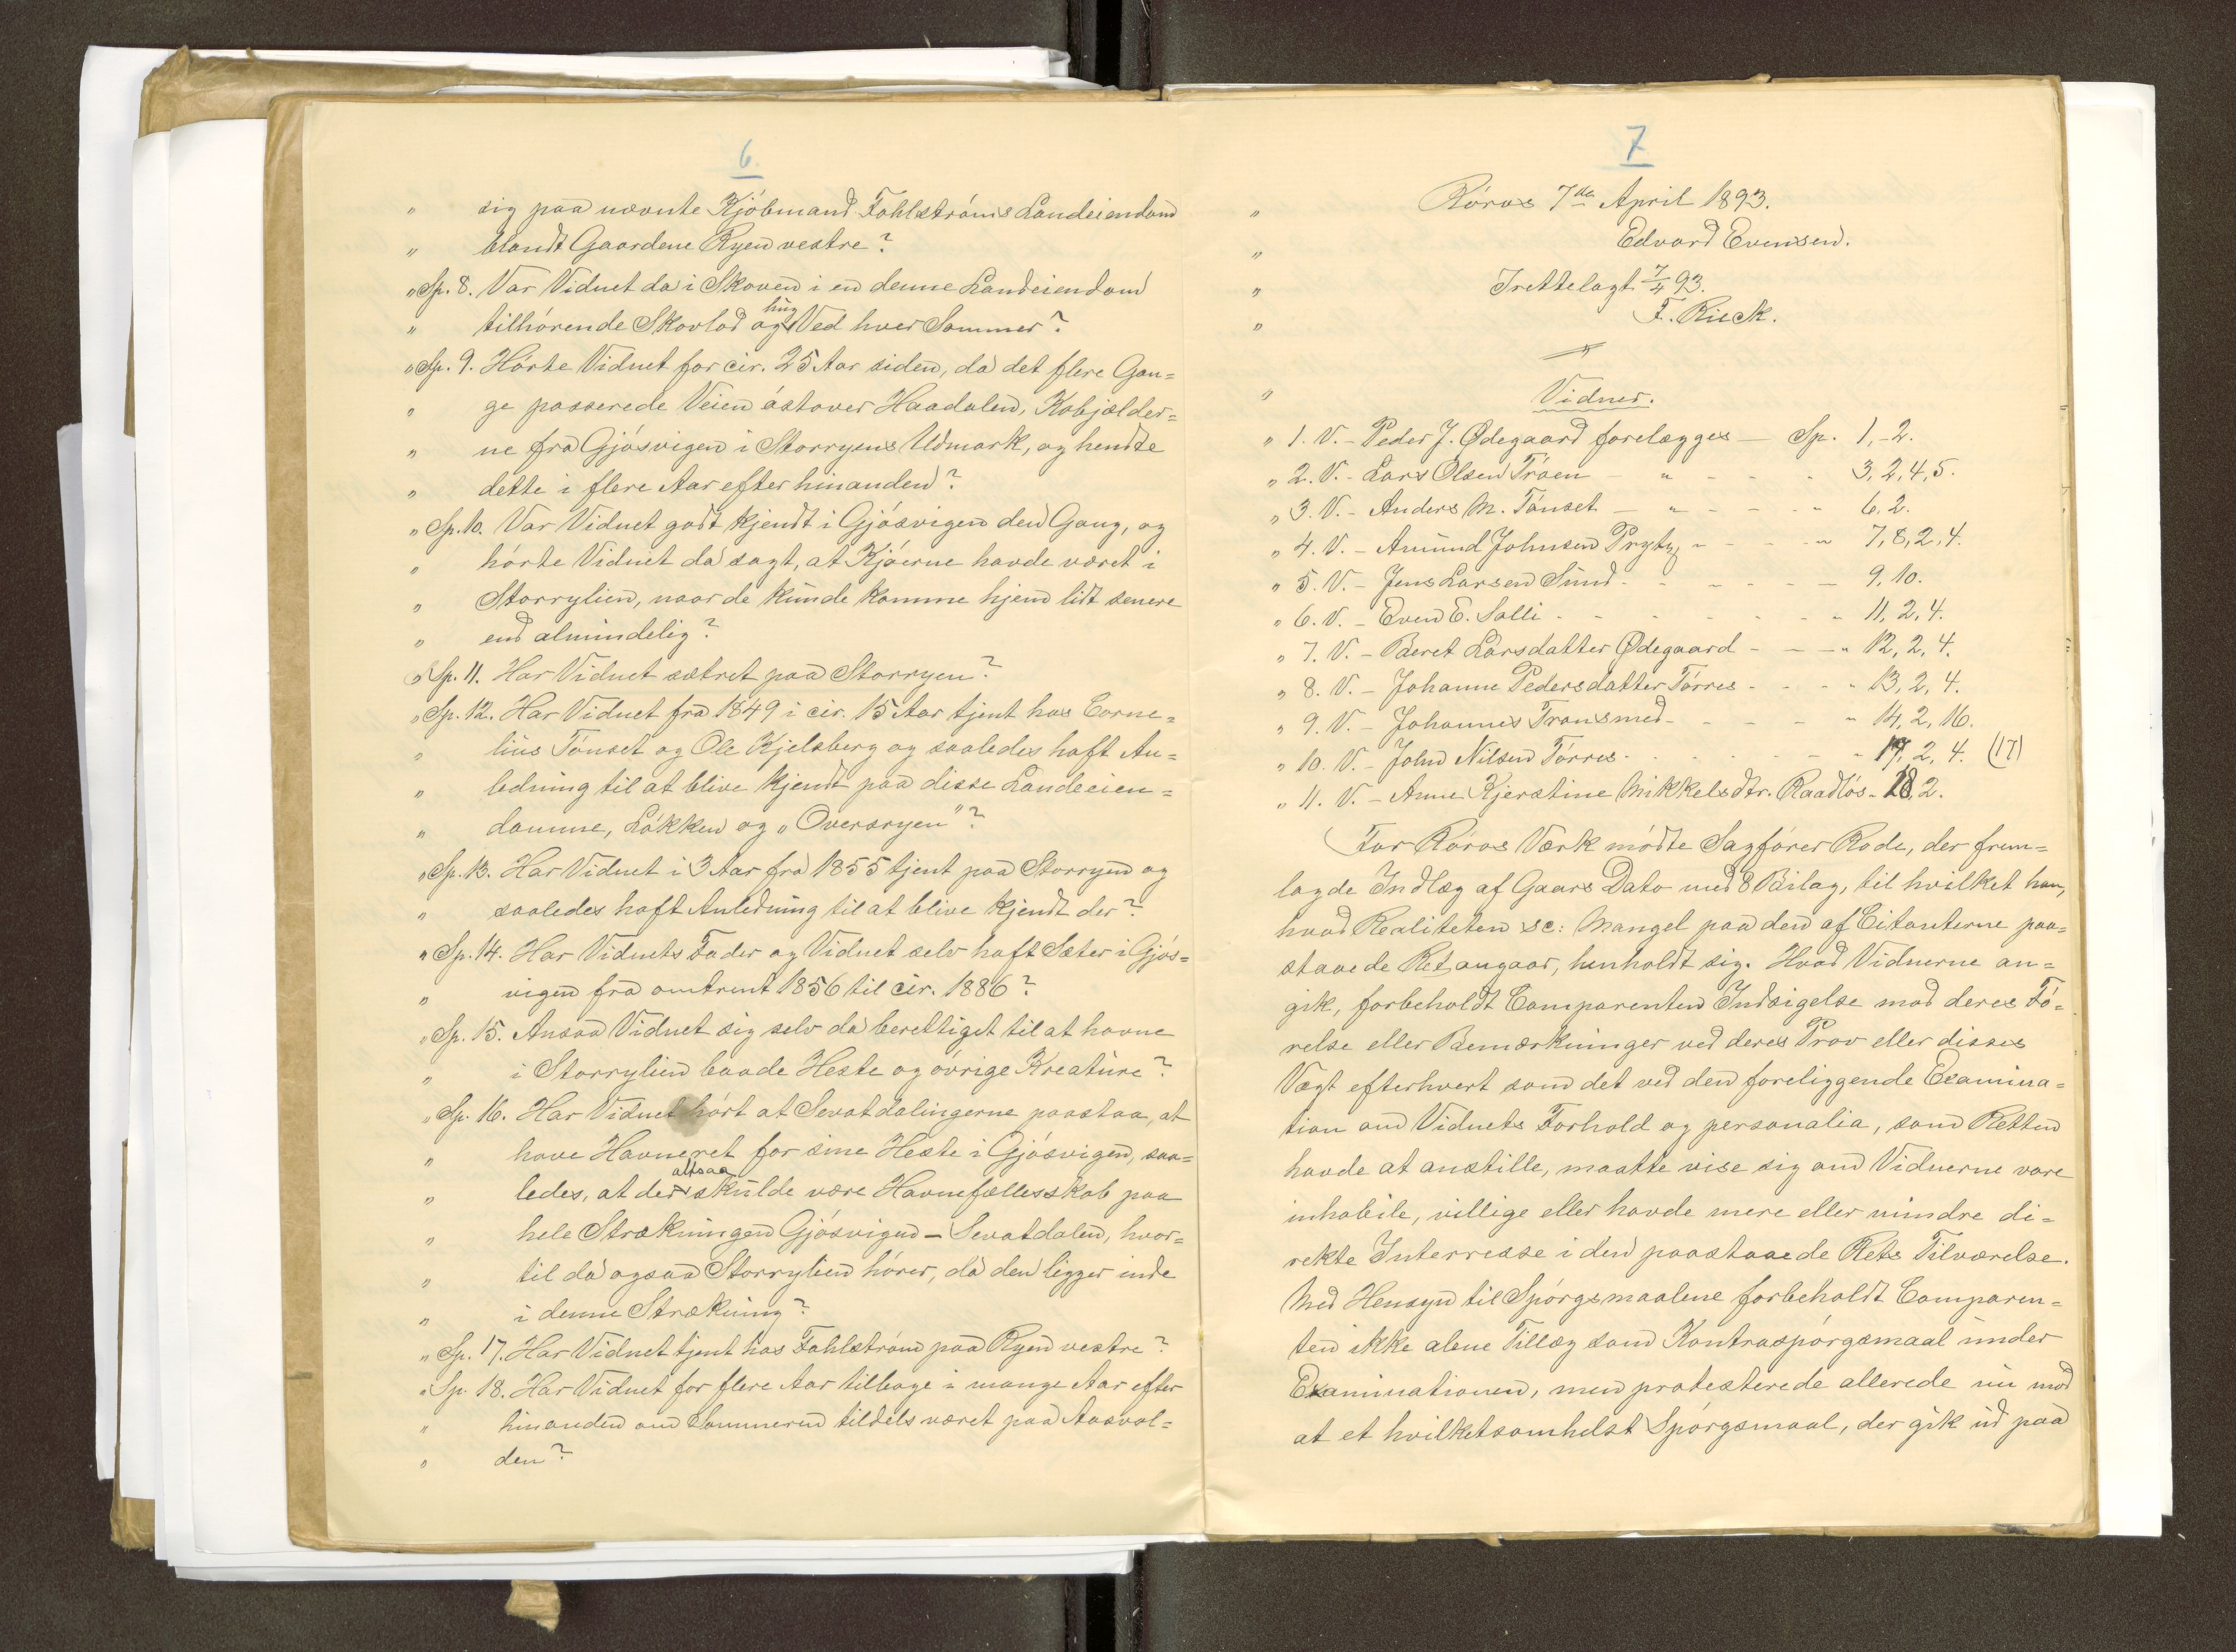 6
" sig paa nævnte Kjöbmand Fahlströms Landeiendom
" blandt Gaardene Ryen vestre?
" Sp. 8. Var Vidnet da i Skoven i en denne Landeiendom
" tilhörende Skovlod og hug Ved hver Sommer?
" Sp. 9. Hörte Vidnet for cir. 25 Aar siden, da det flere Gan=
" ge passerede Veien östover Haadalen, Kobjælder=
" ne fra Gjösvigen i Storryens Udmark, og hendte
" dette i flere Aar efter hinanden?
" Sp. 10. Var Vidnet godt kjendt i Gjösvigen den Gang, og
" hörte Vidnet da sagt, at Kjöerne havde været i
" Storrylien, naar de kunde komme hjem lidt senere
" end almindelig?
" Sp. 11. Har Vidnet sætret paa Storryen?
" Sp. 12. Har Vidnet fra 1849 i cir. 15 Aar tjent hos Corne=
" lius Tönset og Ole Kjelsberg og saaledes haft An=
" ledning til at blive kjendt paa disse Landeien=
" domme, Lökken og „Oversryen"?
" Sp. 13. Har Vidnet i 3 Aar fra 1855 tjent paa Storryen og
" saaledes haft Anledning til at blive kjendt der?
" Sp. 14. Har Vidnets Fader og Vidnet selv haft Sæter i Gjös=
" vigen fra omtrent 1856 til cir. 1886?
" Sp. 15. Ansaa Vidnet sig selv da berettiget til at havne
" i Storrylien baade Heste og övrige Kreature?
" Sp. 16. Har Vidnet hört at Sevatdalingerne paastaa, at
" have Havneret for sine Heste i Gjösvigen, saa=
" ledes, at der altsaa skulde være Havnefællesskab paa
" hele Strækningen Gjösvigen - Sevatdalen, hvor=
" til da ogsaa Storrylien hörer, da den ligger inde
" i denne Strækning?
" Sp. 17. Har Vidnet tjent hos Fahlström paa Ryen vestre?
" Sp. 18. Har Vidnet for flere Aar tilbage i mange Aar efter
" hinanden om Sommeren tildels været paa Aasvol=
" den?
7
" Röros 7de April 1893.
" Edvard Evensen.
" Irettelagt 7/4 93.
" F. Rieck.
" Vidner.
" 1. V. - Peder J. Ødegaard forelægges - Sp. 1,-2.
" 2. V. - Lars Olsen Tröen - " - - - 3, 2, 4, 5.
" 3. V. - Anders M. Tönset - " - - " 6, 2.
" 4. V. - Amund Johnsen Prytz - - - " 7, 8, 2, 4.
" 5. V. - Jens Larsen Sund - - - - - 9, 10.
" 6. V. - Even E. Solli - - - - - " 11, 2, 4.
" 7. V. - Beret Larsdatter Ødegaard - - - " 12, 2, 4.
" 8. V. - Johanne Pedersdatter Törres - - - " 13, 2, 4.
" 9. V. - Johannes Transmed - - - - " 14, 2, 16.
" 10. V. - John Nilsen Törres - - - - " 17, 2, 4. (17)
" 11. V. - Anne Kjerstine Mikkelsdtr. Raadlös - 18, 2.
For Röros Værk mödte Sagförer Rode, der frem=
lagde Indlæg af Gaars Dato med 8 Bilag, til hvilket han,
hvad Realiteten sc: Mangel paa den af Citanterne paa=
staaede Ret angaar, henholdt sig. Hvad Vidnerne an=
gik, forbeholdt Comparenten Indsigelse mod deres Fö=
relse eller Bemærkninger ved deres Prov eller disses
Vægt efterhvert som det ved den foreliggende Examina=
tion om Vidnets Forhold og personalia, som Retten
havde at anstille, maatte vise sig om Vidnerne vare
inhabile, villige eller havde mere eller mindre di=
rekte Interresse i den paastaaede Rets Tilværelse.
Med Hensyn til Spörgsmaalene forbeholdt Comparen=
ten ikke alene Tillæg som Kontraspörgsmaal under
Examinationen, men protesterede allerede nu mod
at et hvilketsomhelst Spörgsmaal, der gik ud paa